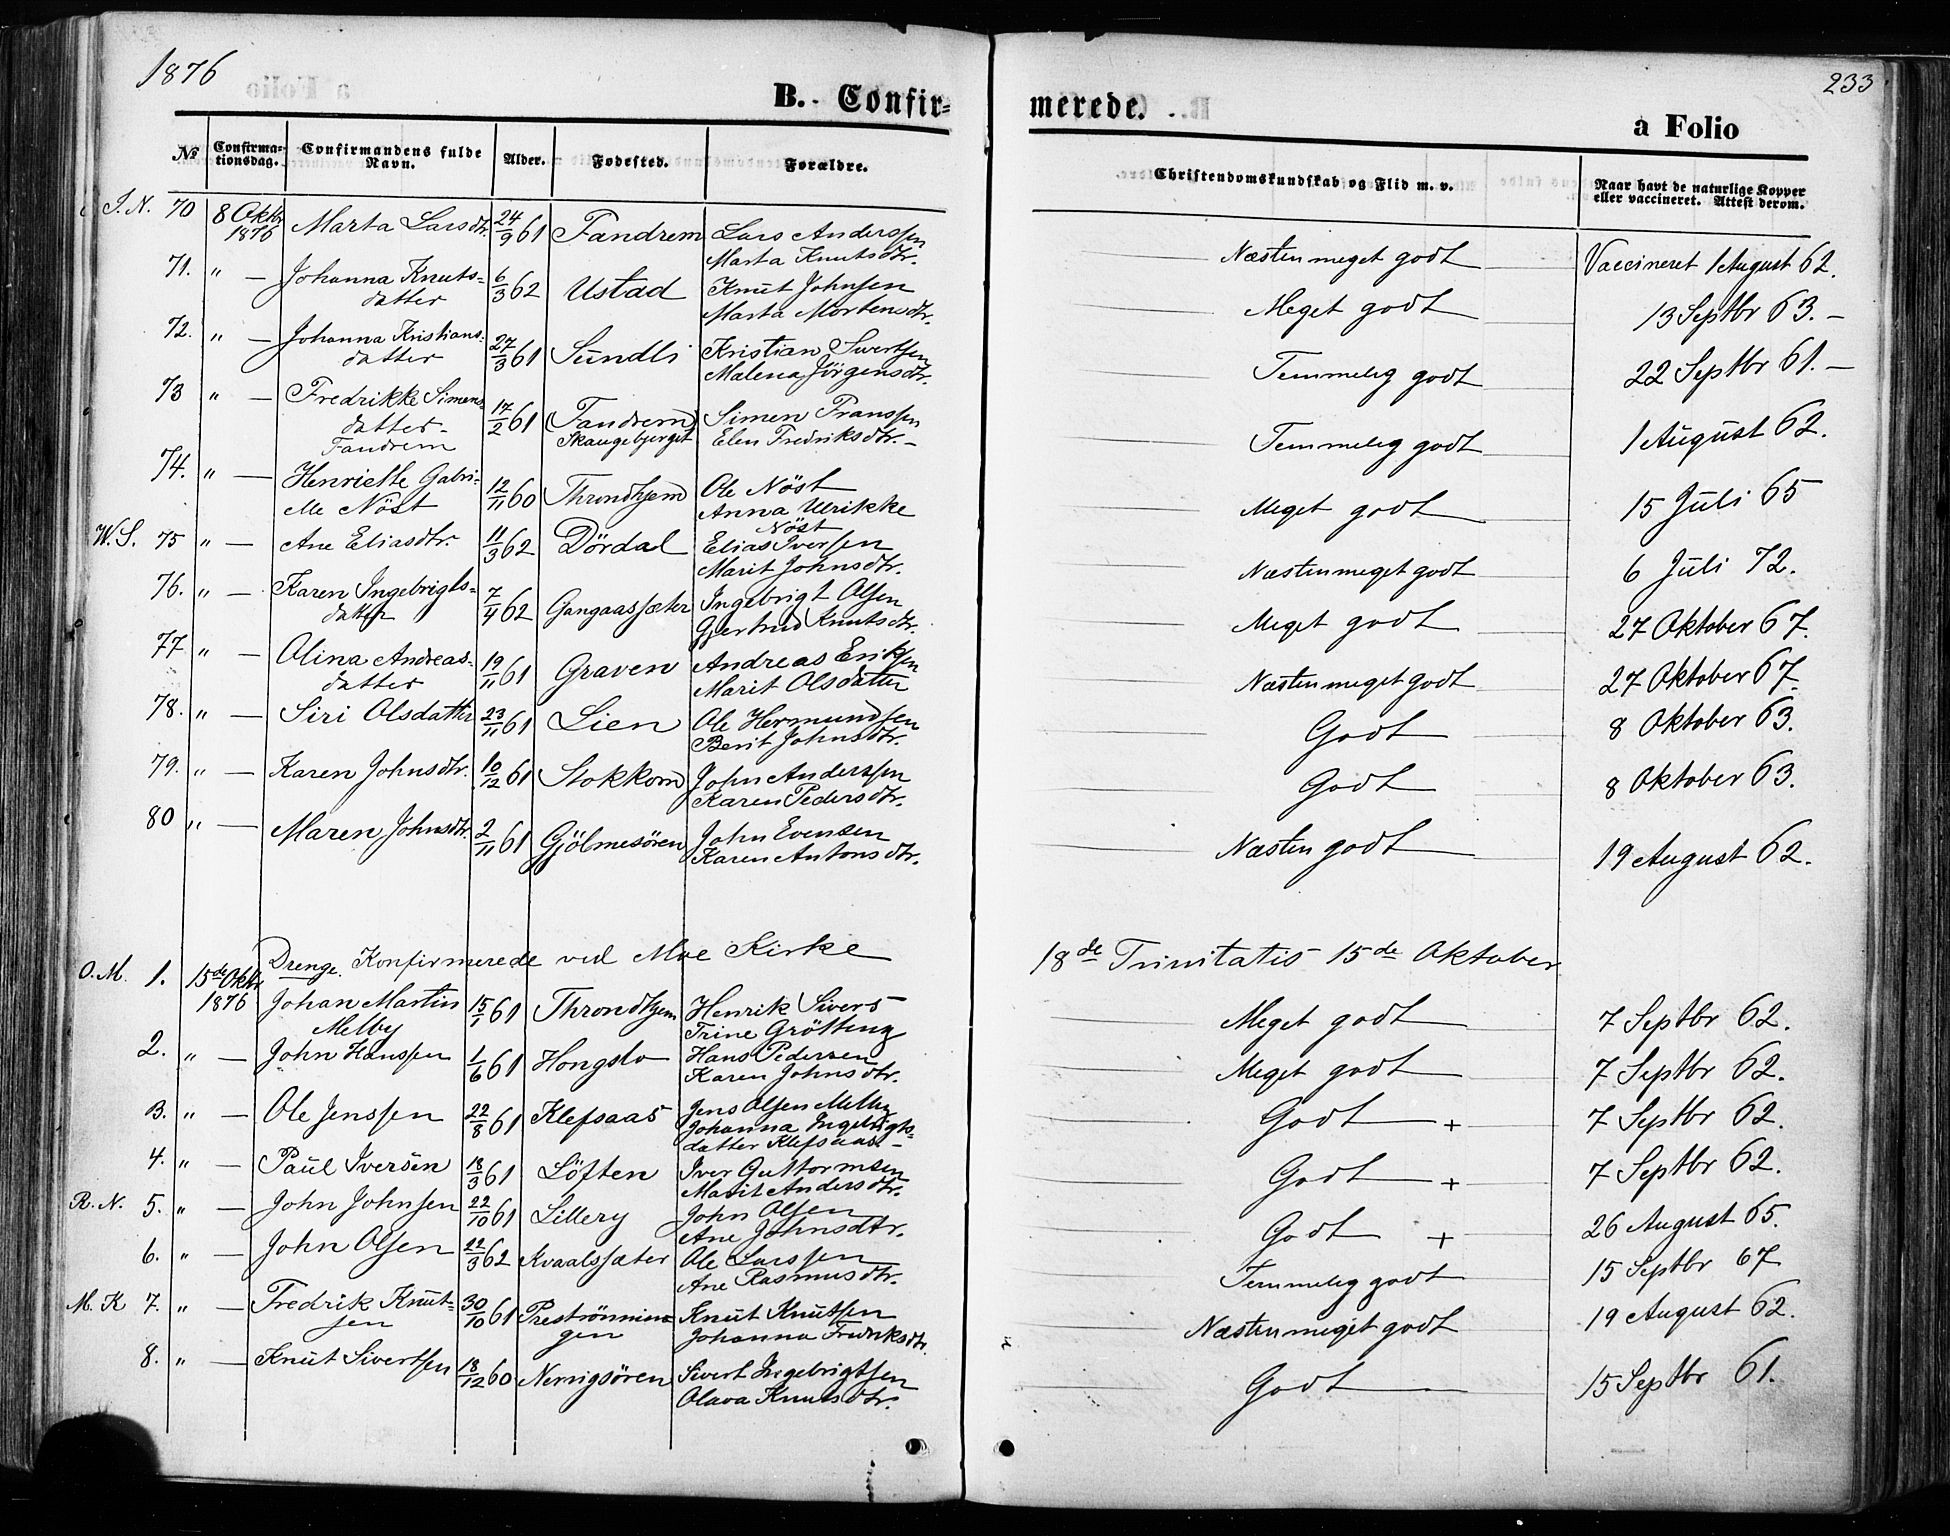 1876
233
B. Confirmerede.
a Folio
№ | Confirmationsdag. | Confirmandens fulde Navn. | Alder. | Fødested. | Forældre. | Christendomskundskab og Flid m. v. | Naar havt de naturlige Kopper eller vaccineret. Attest derom.
I.N. 70 | 8 Oktbr 1876 | Marta Larsdtr. | 24/9 61 | Fandrem | Lars Anderssen Marta Knutsdtr. | Næsten meget godt | Vaccineret 1 August 62.
71. | " — | Johanna Knuts=datter | 6/3 62 | Ustad | Knut Johnsen Marta Mortensdtr. | Meget godt | 13 Septbr 63. –
72. | " — | Johanna Kristians=datter | 27/3 61 | Sundli | Kristian Sivertsen Malena Jörgensdtr. | Temmelig godt | 22 Septbr 61. –
73 | " — | Fredrikke Simensdatter Fandrem | 17/2 61 | (Fandrem) Skaugebjerget | Simen Franssen Elen Fredriksdtr. – | Temmelig godt | 1 August 62.
74. | " — | Henriette Gabrielle Nöst | 12/11 60 | Throndhjem | Ole Nöst Anna Ulrikke Nöst | Meget godt | 15 Juli 65
W.S. 75 | " — | Ane Eliasdtr. | 11/3 62 | Dördal | Elias Iversen Marit Johnsdtr. | Næsten meget godt | 6 Juli 72.
76. | " — | Karen Ingebrigts=datter | 7/4 62 | Gangaassæter | Ingebrigt Olsen Gjertrud Knutsdtr. | Meget godt | 27 Oktober 67.
77 | " — | Olina Andreas=datter | 19/11 61 | Graven | Andreas Eriksen Marit Olsdatter | Næsten meget godt | 27 Oktober 67.
78. | " — | Siri Olsdatter | 23/11 61 | Lien | Ole Hermundsen Berit Johnsdtr. | Godt | 8 Oktober 63.
79. | " — | Karen Johnsdtr. | 10/12 61 | Stokkom | John Anderssen Karen Pedersdtr. | Godt | 8 Oktober 63.
80 | " — | Maren Johnsdtr. | 2/11 61 | Gjölmesören | John Evensen Karen Antonsdtr. | Næsten godt | 19 August 62.
Drenge. Konfirmerede ved Moe Kirke 18de Trinitatis 15de Oktober
O.M. 1. | 15de Oktbr 1876 | Johan Martin Melby | 15/1 61 | Throndhjem | Henrik Sivers Trine Grötting | Meget godt | 7 Septbr 62.
2. | " — | John Hanssen | 1/6 61 | Hongslo | Hans Pedersen Karen Johnsdtr. | Meget godt | 7 Septbr 62.
3. | " — | Ole Jenssen | 22/8 61 | Klefsaas | Jens Olsen Melby Johanna Ingebrigts=datter Klefsaas. – | Godt + | 7 Septbr 62.
4. | " — | Paul Iversen | 18/3 61 | Löften | Iver Guttormsen Marit Andersdtr. | Godt + | 7 Septbr 62.
R.N. 5. | " — | John Johnsen | 22/10 61 | Lillery | John Olsen Ane Johnsdtr. | Godt + | 26 August 65.
6. | " — | John Olsen | 22/3 62 | Kvaalssæter | Ole Larssen Ane Rasmusdtr. | Temmelig godt | 15 Septbr 67
M.K 7. | " — | Fredrik Knut=sen | 30/10 61 | Preströnningen | Knut Knutsen Johanna Fredriksdtr. | Næsten meget godt | 19 August 62.
8. | " — | Knut Sivertsen | 18/12 60 | Nernigsören | Sivert Ingebrigtsen Olava Knutsdtr. | Godt | 15 Septbr 61.